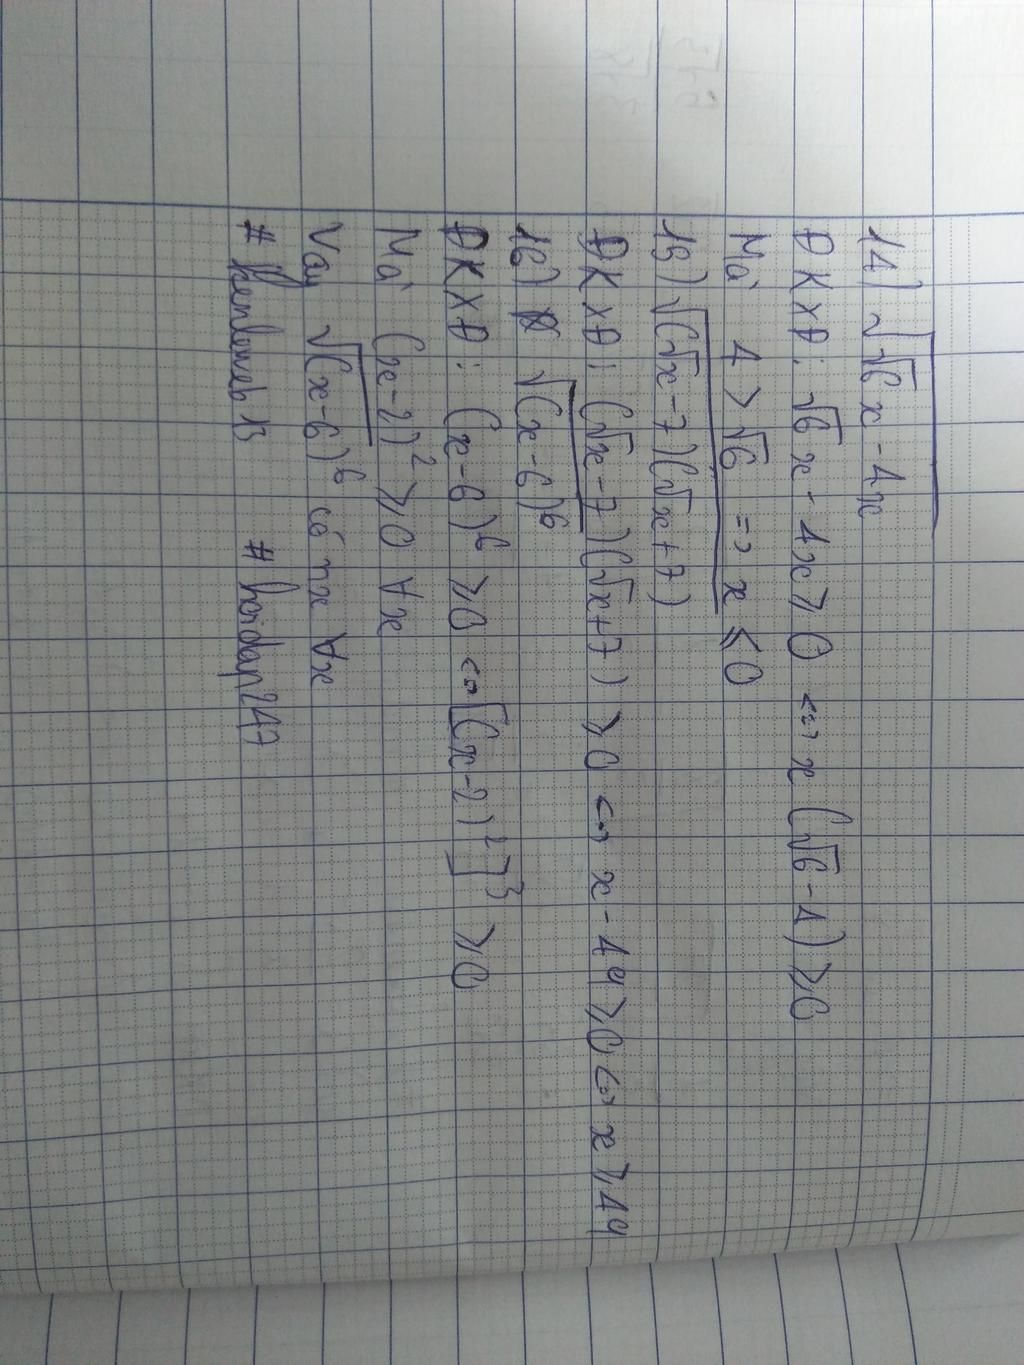 14) √(√6x - 4x)
ĐKXĐ: √6x - 4x ≥ 0 <=> x(√6 - 4) ≥ 0
Mà 4 > √6 => x ≤ 0
15) √((√x - 7)(√x + 7))
ĐKXĐ: (√x - 7)(√x + 7) ≥ 0 <=> x - 49 ≥ 0 <=> x ≥ 49
16) √(x - 6)⁶
ĐKXĐ: (x - 6)⁶ ≥ 0 <=> [(x - 2)²]³ ≥ 0
Mà (x - 2)² ≥ 0 ∀x
Vậy √(x - 6)⁶ có nx ∀x
# # hoidap247